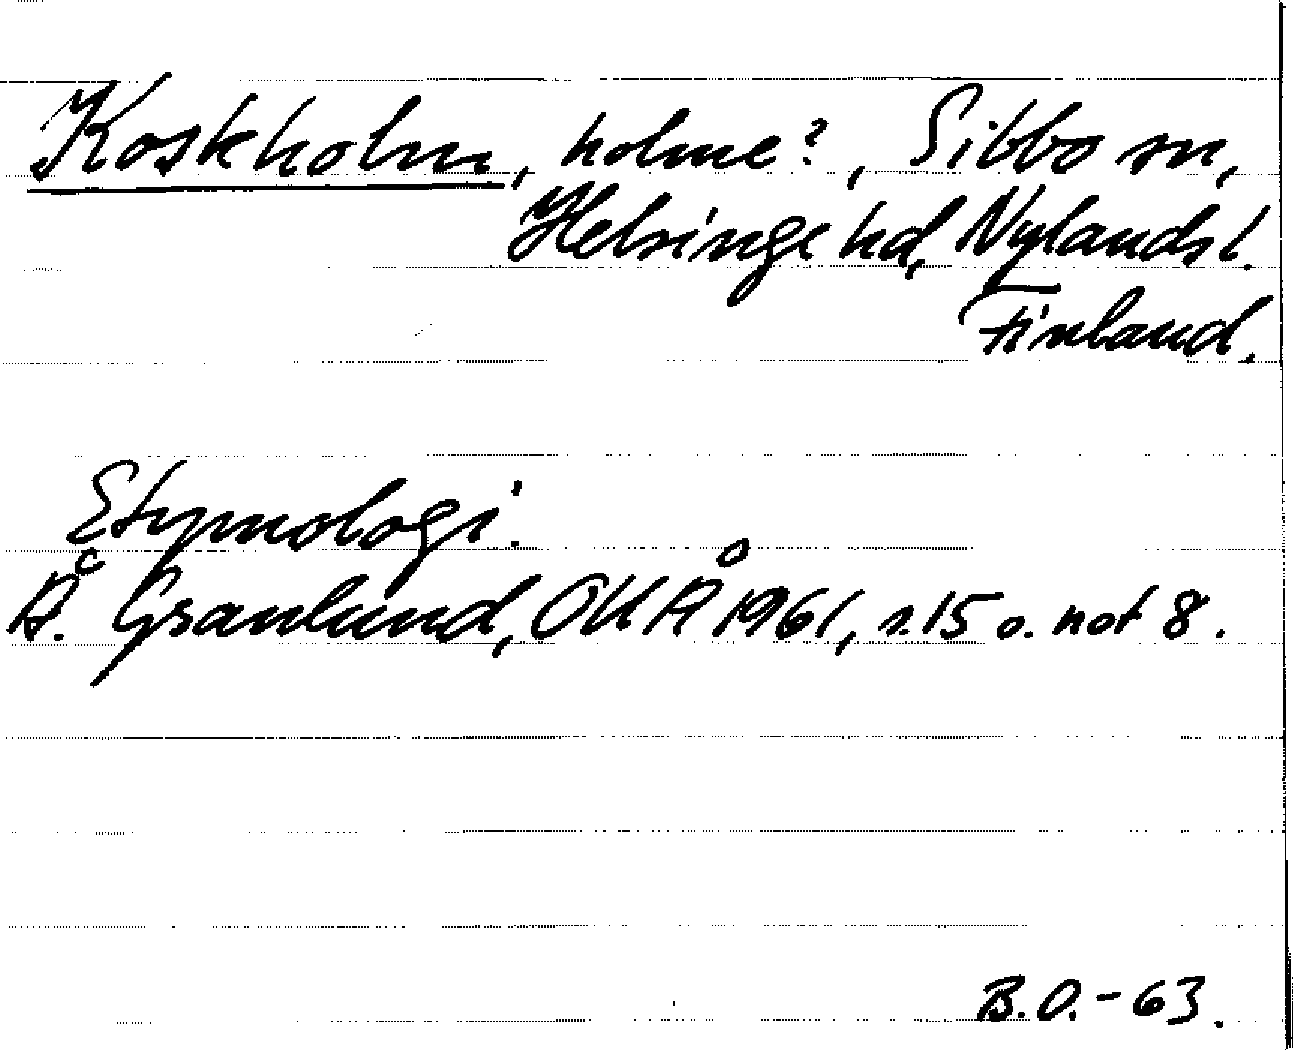 Koskholm, holme?, Sibbo sn,
Helsinge hd, Nylands l.
Finland.
Etymologi:
Å. Granlund, OUÅ 1961, s. 15 o. not 8.
B.O.-63.